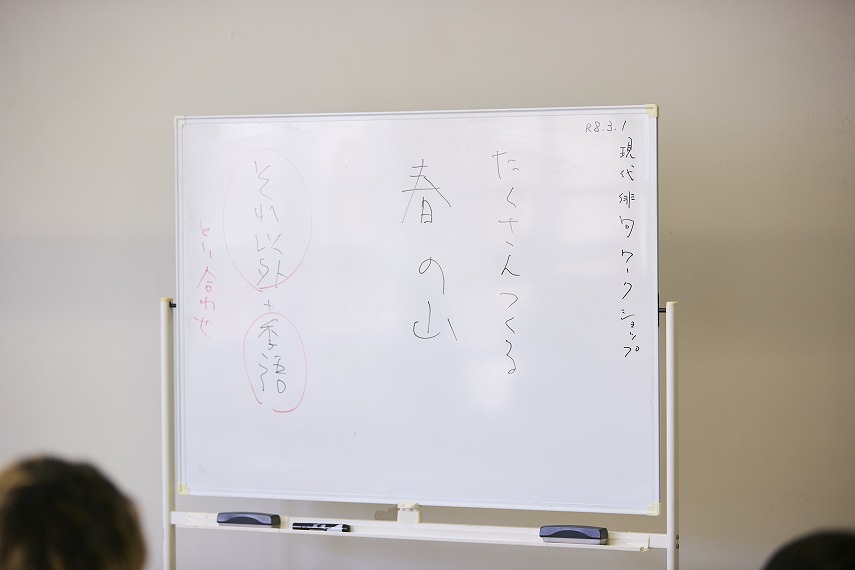 R8.3.1
現代俳句ワークショップ
たくさんつくる
春の山
それ以外+季語
とり合わせ